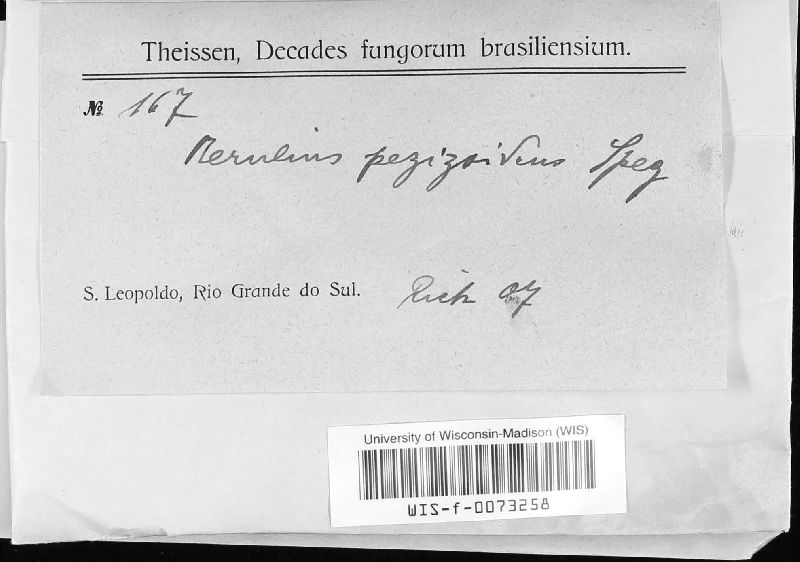 Theissen, Decades fungorum brasiliensium.
№ 167
Merulius pezizoideus Speg
S. Leopoldo, Rio Grande do Sul. 07
University of Wisconsin-Madison (WIS)
WIS-f-0073258